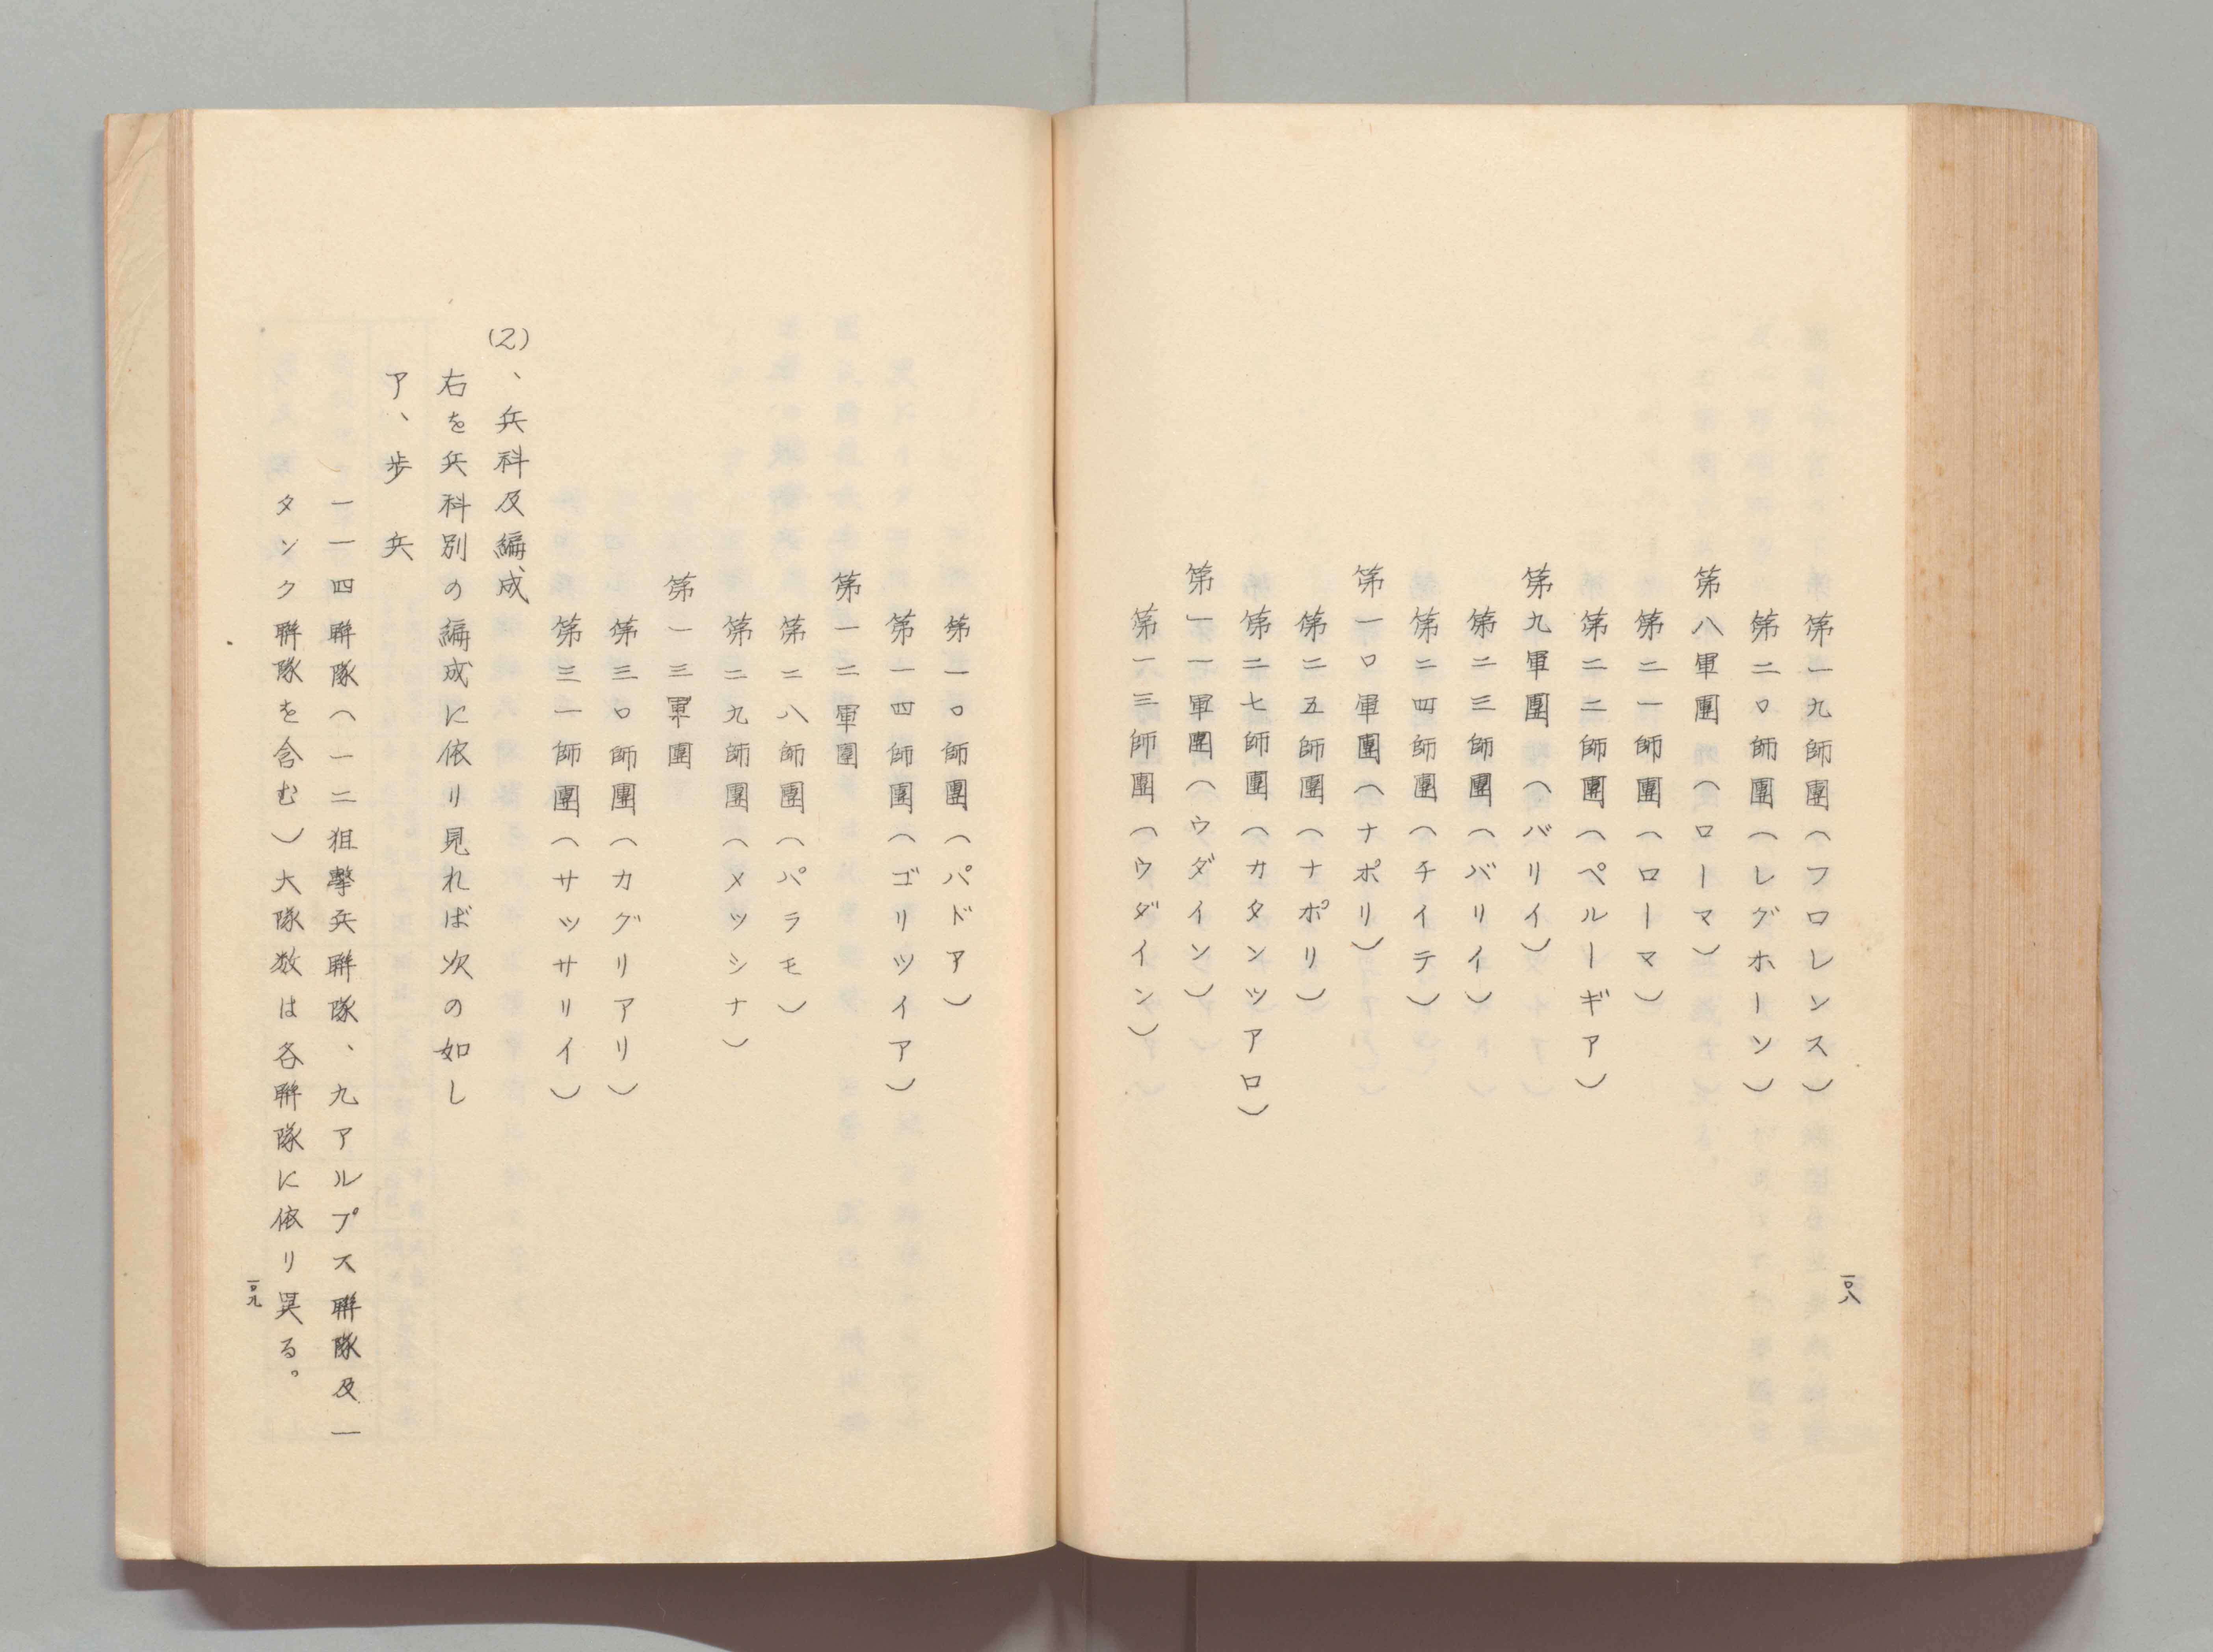 第一九師團(フロレンス)
第二〇師團(レグホーン)
第八軍團(ローマ)
第二一師團(ローマ)
第二二師團(ペルーギア)
第九軍團(バリイ)
第二三師團(バリイ)
第二四師團(チイテ)
第一〇軍團(ナポリ)
第二五師團(ナポリ)
第二七師團(カタンツアロ)
第一一軍團(ウダイン)
第一三師團(ウダイン)
一〇八
第一〇師團(パドア)
第一四師團(ゴリツイア)
第一二軍團
第二八師團(パラモ)
第二九師團(メツシナ)
第一三軍團
第三〇師團(カグリアリ)
第三一師團(サツサリイ)
(2)、兵科及編成
右を兵科別の編成に依り見れば次の如し
ア、歩 兵
一一四聯隊(一二狙擊兵聯隊、九アルプス聯隊及一
タンク聯隊を含む)大隊数は各聯隊に依り異る。
一〇九